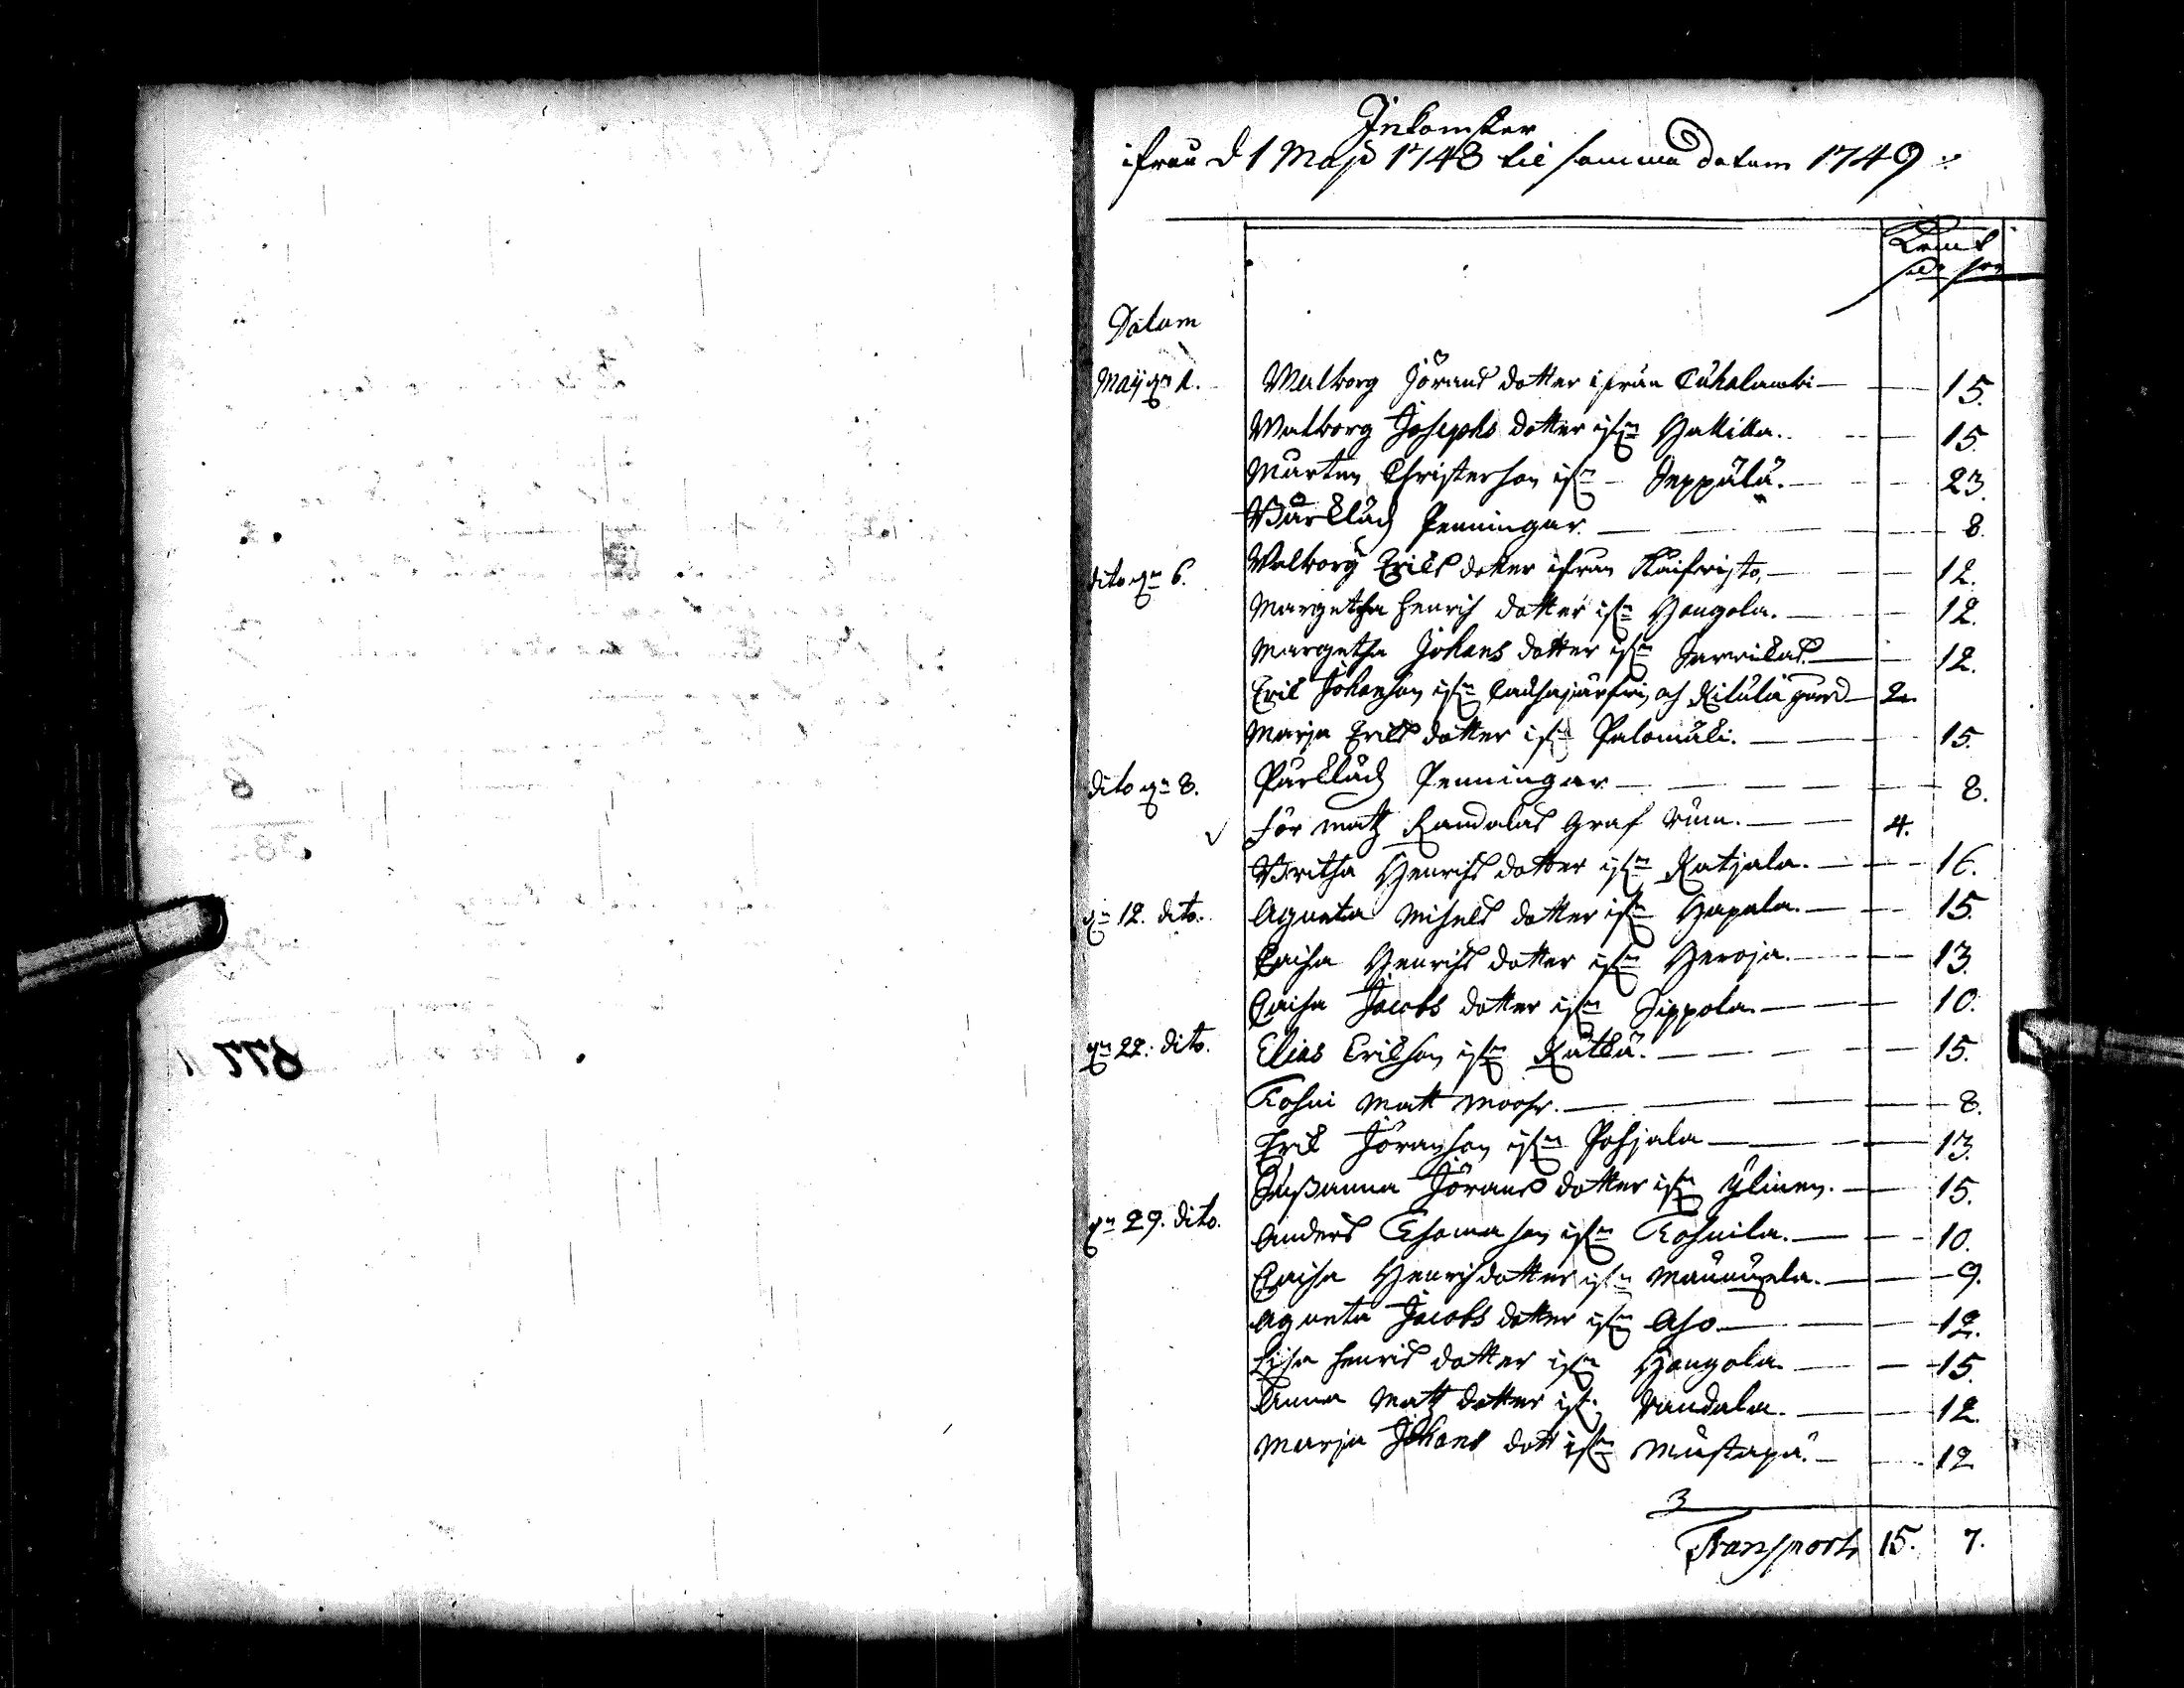 Inkomster
ifrån d 1 Maji 1748 til samma datum 1749
Datum
Maij d 1. Walborg Jörans dotter ifrån Cuhalambi 15.
Walborg Josephs dotter ifrn Hallilla. 15.
Mårten Christersson ifrn Seppälä. 23.
Bårkläds Penningar. 8.
dito dn 6. Walborg Erics dotter ifrån 12.
Margetha Henrich dotter ifrn Hongola. 12.
Margetha Johans dotter ifrn 12.
Eric Johanson ifrn och gård 2
Marja Erics dotter ifrn Palomäki. 15.
dito dn 8. Pårkläds Penningar 8.
För Matz Randalas Graf rum. 4.
Britha Henrichs dotter ifrn Ratjala. 16.
dn 12. dito. Agneta Michels dotter ifrn Hapala. 15
Caisa Henrichs dotter ifrn Heroja. 13.
Caisa Jacobs dotter ifrn Sippola 10.
dn 22. dito. Elias Erikson ifrn 15.
Matt 8.
Erik Jöranson ifrn Pohjala 13.
Sußanna Jörans dotter ifrn Ylinen. 15.
dn 29. dito. Anders Thomason ifrn 10.
Caisa Henrichdotter ifrn 9.
Agneta Jacobs dotter ifrn Aho 12.
Lisa Henrics dotter ifrn Hongola 15.
Anna Matz dotter ifr. Randala. 12
Marja Johans dott ifrn Mustapä. 12
3
Transport 15. 7.